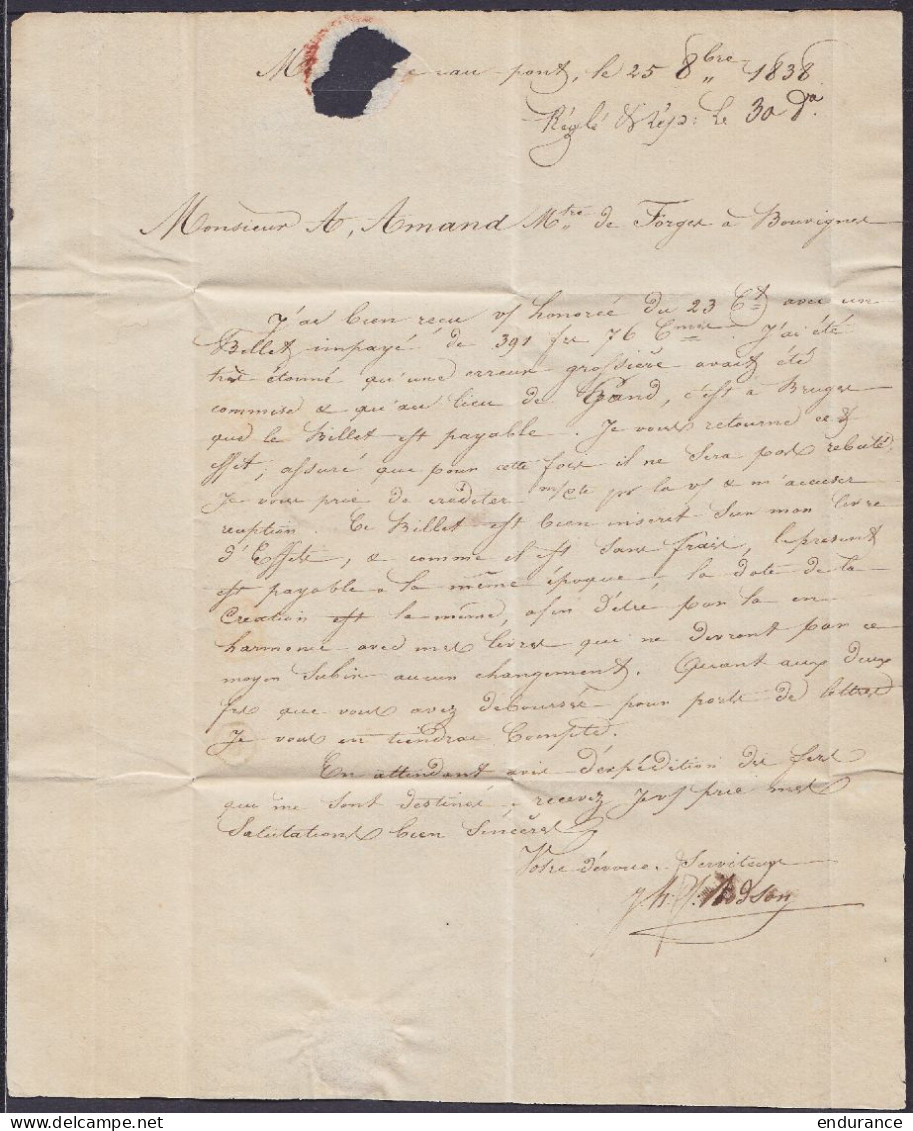 M e-au-pont, le 25 8bre 1838
Réglé & Rép: Le 30 do.
Monsieur A, Amand Mtre de Forges à Bouvignes
J'ai bien recu v/ honorée du 23 Ct avec un
Billet impayé de 391 frs 76 Cmes. J'ai été
très étonné qu'une erreur grossière avait été
commise & qu'au lieu de Gand, c'est à Bruges
que le Billet est payable. Je vous retourne cet
effet, assuré que pour cette fois il ne sera pas rebuté.
Je vous prie de créditer m/cte pr la v/ & m'accuser
reception. Ce Billet est bien inscrit dans mon livre
d'Effets, & comme il est sans frais, le présent
est payable à la même époque & la date de la
Création est la même, afin d'être par là en
harmonie avec mes livres qui ne devront par ce
moyen subir aucun changement. Quant aux deux
frs que vous avez deboursés pour ports de lettres
Je vous en tiendrai Compte.
En attendant avis d'expédition des fers
qui me sont destinés, recevez Je v/ prie mes
Salutations bien Sincères
Votre dévoué Serviteur
Jh. J. Hodson
endurance